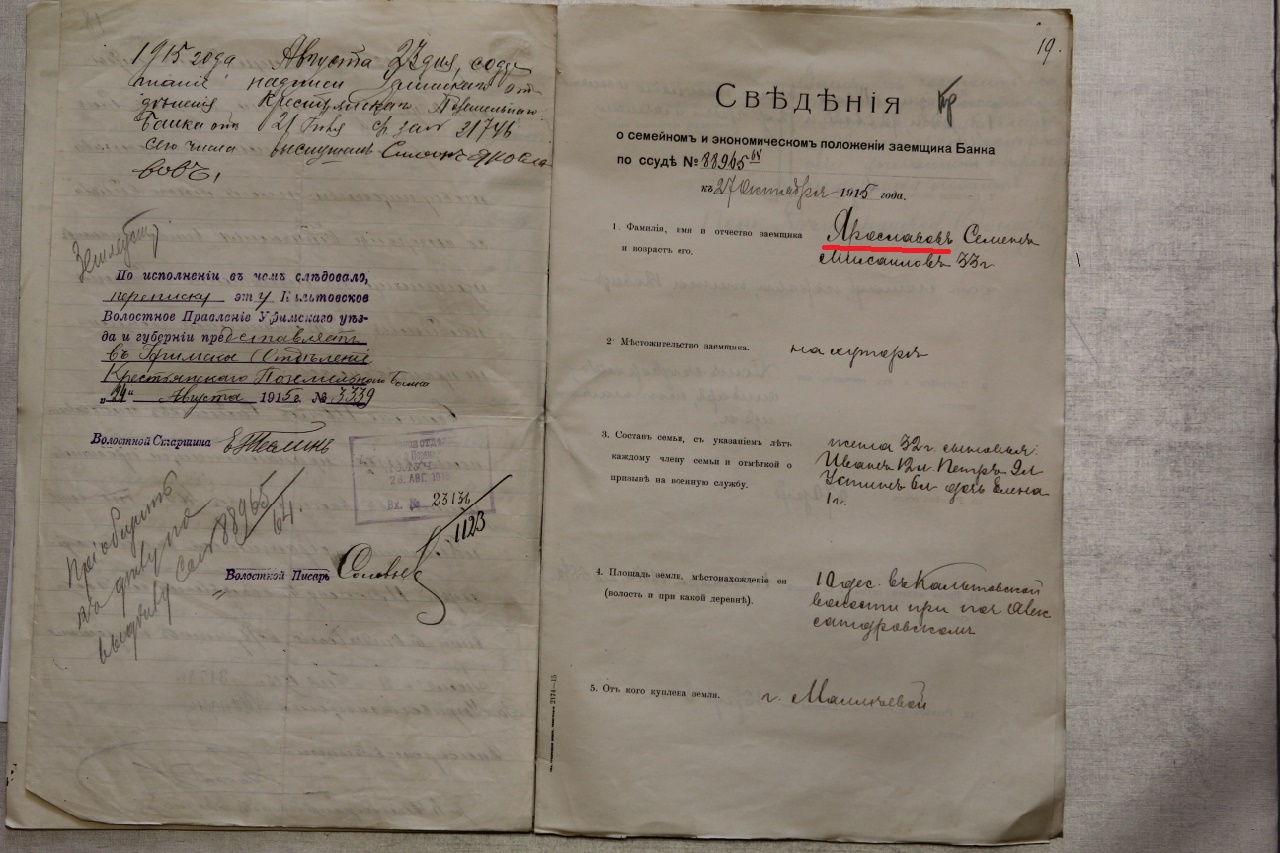 1915 года Августа 23 дня, содер
жание надписи Уфимскаго от
дѣленія Крестьянскаго Поземельнаго
Банка отъ 21 Іюля за № 31746
сего числа выслушалъ Семенъ Яросла
вовъ,
По исполненіи въ чемъ слѣдовало,
переписку эту Кальтовское
Волостное Правленіе Уфимскаго уѣз-
да и губерніи представляетъ
въ Уфимское Отдѣленіе
Крестьянскаго Поземельнаго Банка
„24“ Августа 1915 г. № 3339
Волостной Старшина
26 АВГ. 1915
Вх. № 23136
1123
Пріобщить
къ дѣлу по
88965/64.
Волостной Писарь Соловьев
19.
Свѣдѣнія
о семейномъ и экономическомъ положеніи заемщика Банка
по ссудѣ № 88965 64
къ 27 Октября 1915 года.
1. Фамилія, имя и отчество заемщика
и возрастъ его.
Ярославовъ Семенъ
Мисаиловъ 33 г.
2. Мѣстожительство заемщика.
на хуторѣ
3. Составъ семьи, съ указаніемъ лѣтъ
каждому члену семьи и отмѣткой о
призывѣ на военную службу.
жена 32 г. сыновья:
Иванъ 12 л Петръ 9 л
Устинъ 6 л дочь Елена
1 г.
4. Площадь земли, мѣстонахожденіе ея
(волость и при какой деревнѣ).
10 дес. въ Кальтовской
волости при пос Алек
сандровскомъ
5. Отъ кого куплена земля.
г.
2174—15